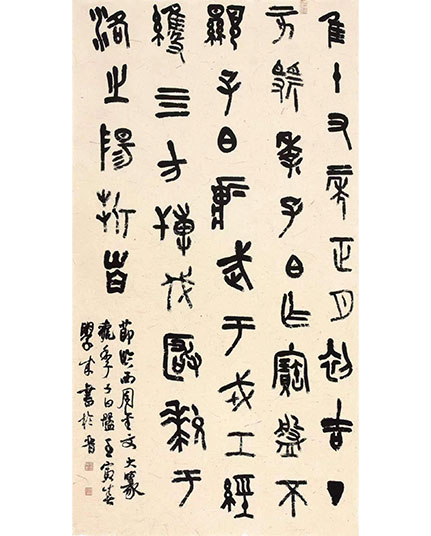 隹十又二年正月初吉丁
亥虢季子白乍寶盤不
顯子白壯武于戎工經
維四方搏伐玁狁于
洛之陽折首
節臨西周金文大篆
虢季子白盤壬寅春
學書於晉